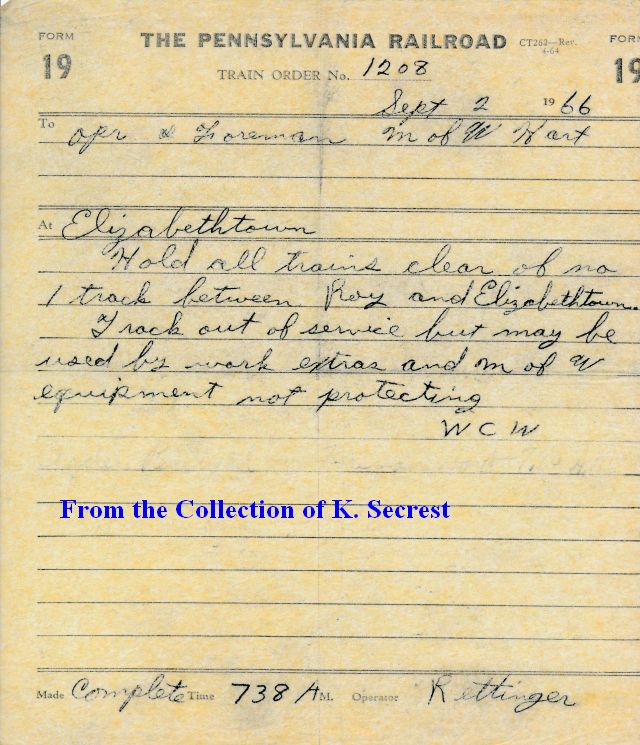 FORM THE PENNSYLVANIA RAILROAD CT262—Rev. FORM
19 4-64 19
TRAIN ORDER No. 1208
Sept 2 1966
To opr & Foreman M of W Hart
At Elizabethtown
Hold all trains clear of no
1 track between Roy and Elizabethtown.
Track out of service but may be
used by work extras and M of W
equipment not protecting
W C W
From the Collection of K. Secrest
Made Complete Time 738 A M. Operator Rettinger